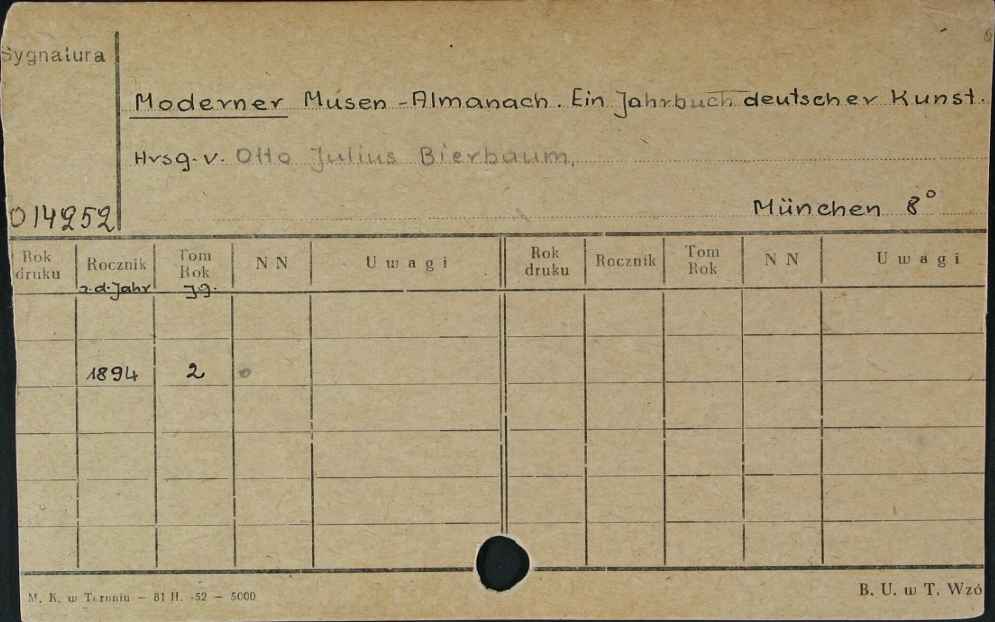 Sygnatura
Moderner Musen-Almanach. Ein Jahrbuch deutscher Kunst.
Hrsg. v. Otto Julius Bierbaum,
014252
München 8°
Rok druku Rocznik Tom Rok NN Uwagi Rok druku Rocznik Tom Rok NN Uwagi
a.d. Jahr Jg.
1894 2
M. K. w Toruniu – 81 H. -52 – 5000
B. U. w T. Wzó